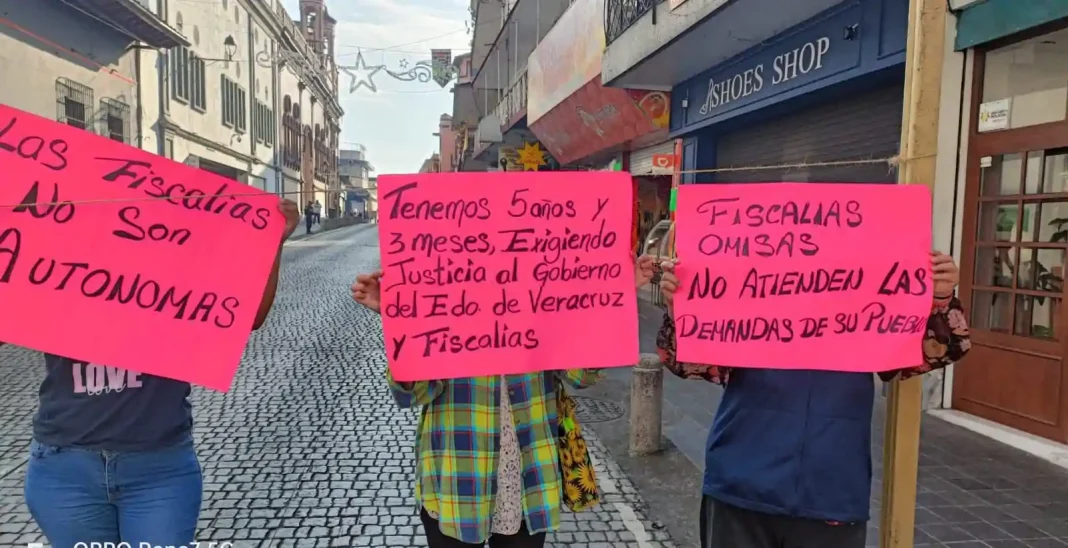 Las Fiscalias
No Son
AUTONOMAS
Tenemos 5 años y
3 meses, Exigiendo
Justicia al Gobierno
del Edo. de Veracruz
y Fiscalias
FISCALIAS
OMISAS
NO ATIENDEN LAS
DEMANDAS DE SU PUEBLO
SHOES SHOP
LOVE